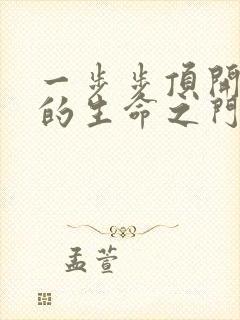 一步步頂開
的生命之門
孟萱